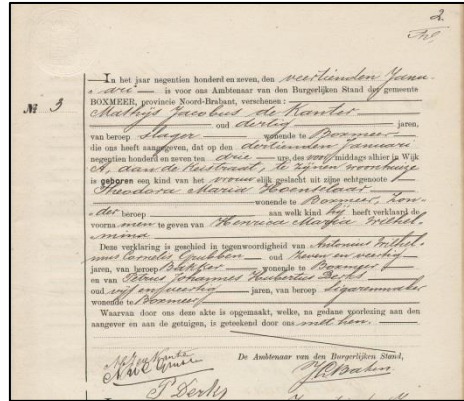 2.
In het jaar negentien honderd en zeven, den veertienden Janu-
ari is voor ons Ambtenaar van den Burgerlijken Stand der gemeente
BOXMEER, provincie Noord-Brabant, verschenen:
Nº 3 Mathijs Jacobus de Kanter
oud dertig jaren,
van beroep slager wonende te Boxmeer
die ons heeft aangegeven, dat op den dertienden Januari
negentien honderd en zeven ten drie ure, des voormiddags alhier in Wijk
A, aan de straat, te zijnen woonhuize
is geboren een kind van het vrouwelijk geslacht uit zijne echtgenoote
Theodora Maria Hoenselaar
wonende te Boxmeer, zon-
der beroep aan welk kind hij heeft verklaard de
voornamen te geven van Henrica Maria Wilhel-
mina
Deze verklaring is geschied in tegenwoordigheid van Antonius Wilhel-
mus Cornelis Grubben oud zeven en veertig
jaren, van beroep Bakker wonende te Boxmeer
en van Petrus Johannes Hubertus Derks
oud vijf en veertig jaren, van beroep Sigarenmaker
wonende te Boxmeer
Waarvan door ons deze akte is opgemaakt, welke, na gedane voorlezing aan den
aangever en aan de getuigen, is geteekend door ons met hen.
De Ambtenaar van den Burgerlijken Stand,
P Derks